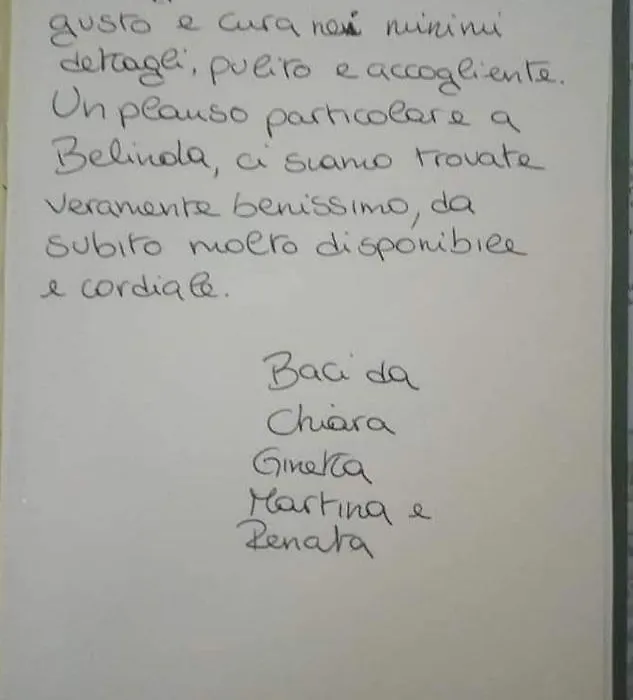 gusto e cura nei minimi
dettagli, pulito e accogliente.
Un plauso particolare a
Belinda, ci siamo trovate
veramente benissimo, da
subito molto disponibile
e cordiale.
Baci da
Chiara
Ginetta
Martina e
Renata